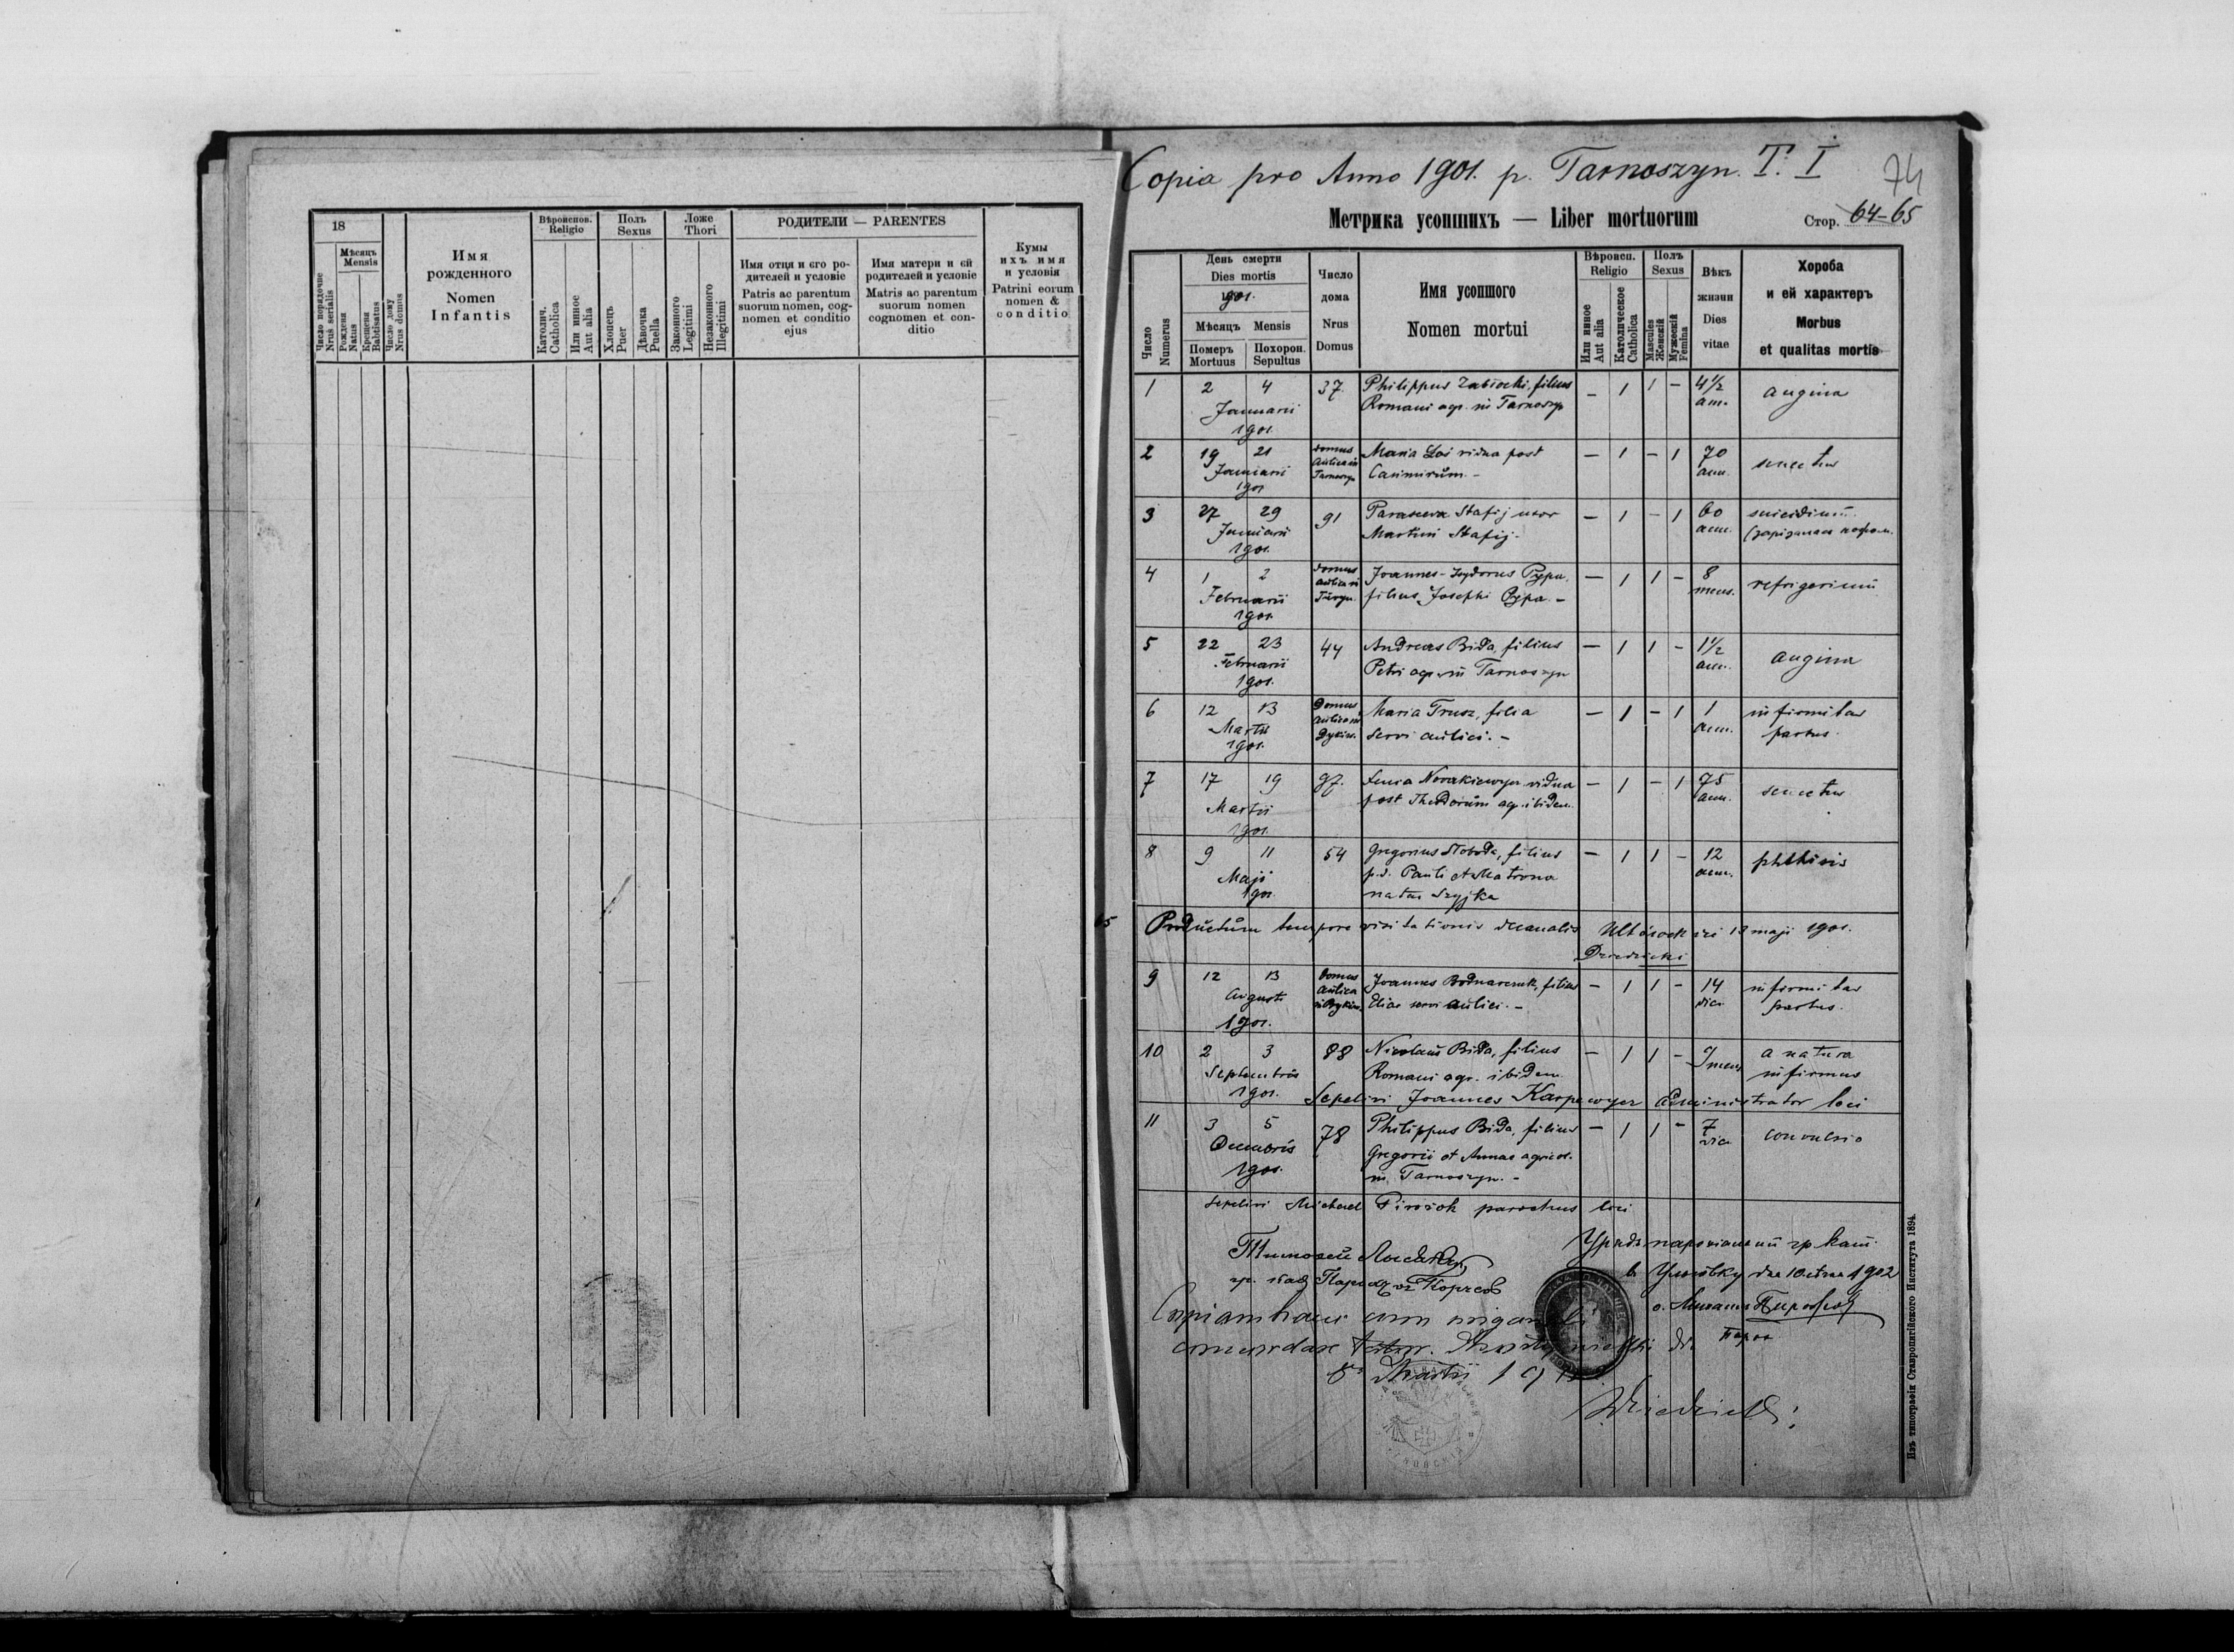 18
Число порядочне
Nrus serialis
Мѣсяцъ
Mensis
Рождея
Natus
Крещеня
Babtisatus
Число дому
Nrus domus
Имя
рожденного
Nomen
Infantis
Вѣроиспов.
Religio
Католич.
Catholica
Или инное
Aut alia
Полъ
Sexus
Хлопецъ
Puer
Дѣвочка
Puella
Ложе
Thori
Законного
Legitimi
Незаконного
Illegitimi
РОДИТЕЛИ — PARENTES
Имя отця и єго ро-
дителей и условіє
Patris ac parentum
suorum nomen, cog-
nomen et conditio
ejus
Имя матери и єй
родителей и условіє
Matris ac parentum
suorum nomen
cognomen et con-
ditio
Кумы
ихъ имя
и условія
Patrini eorum
nomen &
conditio
Copia pro Anno 1901. p. Tarnoszyn. T. I
74
Метрика усопшихъ — Liber mortuorum
Стор. 64-65
Число
Numerus
День смерти
Dies mortis
1901.
Мѣсяцъ Mensis
Померъ
Mortuus
Похорон.
Sepultus
Число
дома
Nrus
Domus
Имя усопшого
Nomen mortui
Вѣроисп.
Religio
Или инное
Aut alia
Католическое
Catholica
Полъ
Sexus
Mascules
Женскій
Мужескій
Femina
Вѣкъ
жизни
Dies
vitae
Хороба
и ей характеръ
Morbus
et qualitas mortis
1 2 4 37 Philippus Zabłocki, filius — 1 1 — 4½ angina
Januarii Romani agr. in Tarnoszyn ann.
1901.
2 19 21 domus Maria Łoś vidua post — 1 — 1 70 senectus
Januarii aulica in Casimirum. - ann.
1901 Tarnoszyn
3 27 29 91 Parasceva Stafij uxor — 1 — 1 60 suicidium
Januarii Martini Stafij. ann.
1901.
4 1 2 domus Joannes-Isydorus Pypa, — 1 1 — 8 refrigerium
Februarii aulica in filius Josephi Pypa. - mens.
1901.
5 22 23 44 Andreas Bida, filius — 1 1 — 1½ angina
Februarii Petri agr. in Tarnoszyn ann.
1901.
6 12 13 Domus Maria Trusz, filia — 1 — 1 1 infirmitas
Martii aulica in servi aulici. - ann. partus.
1901.
7 17 19 97. Nowakiewycz vidua — 1 — 1 75 senectus
Martii post Theodorum agr. ibidem. ann.
1901.
8 9 11 54 Gregorius Słoboda, filius — 1 1 — 12 phthisis
Maji p.d. Pauli et Matrona ann.
1901 natae Szyjka
65 Productum tempore visitationis decanalis maji 1901.
9 12 13 Domus Joannes Bodnarczuk, filius — 1 1 — 14 infirmitas
Augusti aulica Eliae servi aulici. - dies partus.
1901.
10 2 3 88 Nicolaus Bida, filius — 1 1 — 9 mens. a natura
Septembris Romani agr. ibidem. infirmus
1901. Sepelivi Joannes Karpewycz administrator loci
11 3 5 78 Philippus Bida, filius — 1 1 — 7 convulsio
Decembris Gregorii et Annae agricol. dies
1901. in Tarnoszyn. -
Sepelivi Michael parochus loci
Урядъ парохіальний гр. кат.
1902
о. Михаилъ
парох
Martii
Изъ типографіи Ставропигійского Института 1894.